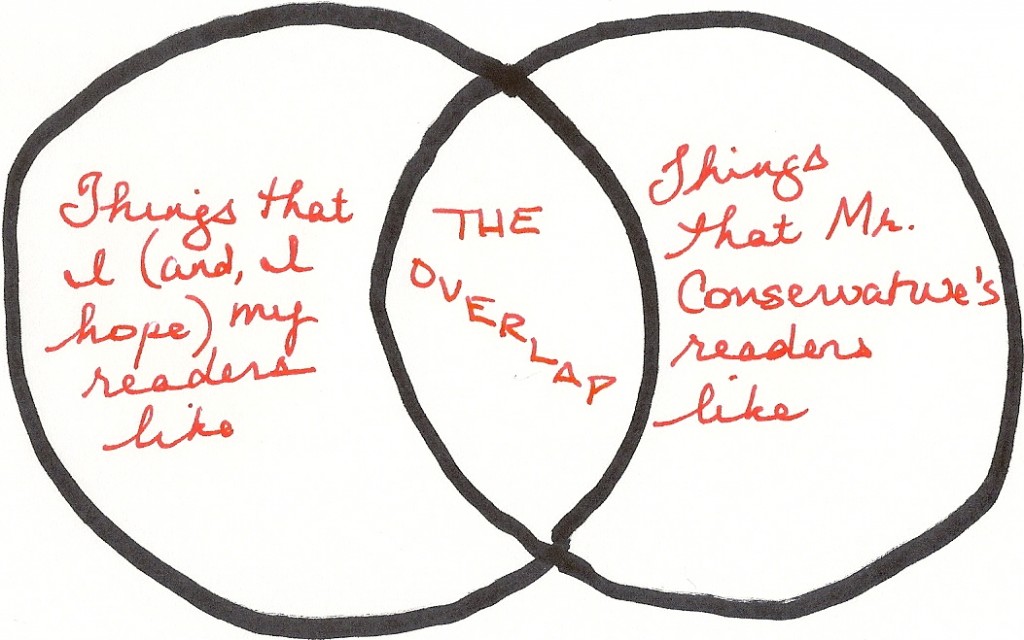 Things that
I (and, I
hope) my
readers
like
THE
OVERLAP
Things
that Mr.
Conservative's
readers
like